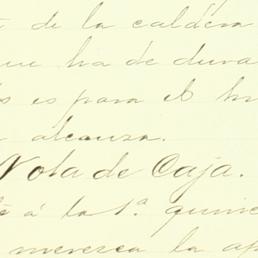 de la caldera
que ha de dura
es para el
alcanza.
Nota de Caja.
á la 1ª quinc
merezca la ap